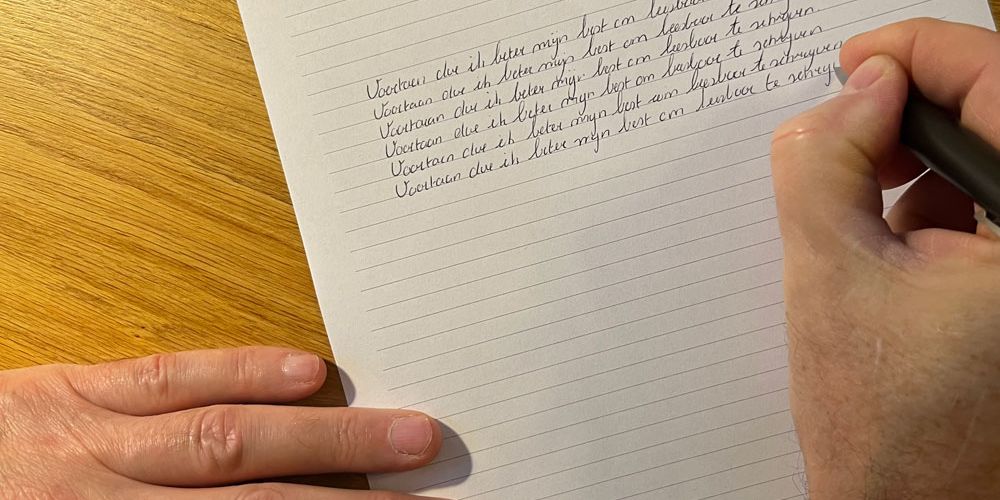 Voortaan doe ik beter mijn best om leesbaar
Voortaan doe ik beter mijn best om leesbaar te
Voortaan doe ik beter mijn best om leesbaar te schrijven.
Voortaan doe ik beter mijn best om leesbaar te schrijven
Voortaan doe ik beter mijn best om leesbaar te schrijven
Voortaan doe ik beter mijn best om leesbaar te schrij